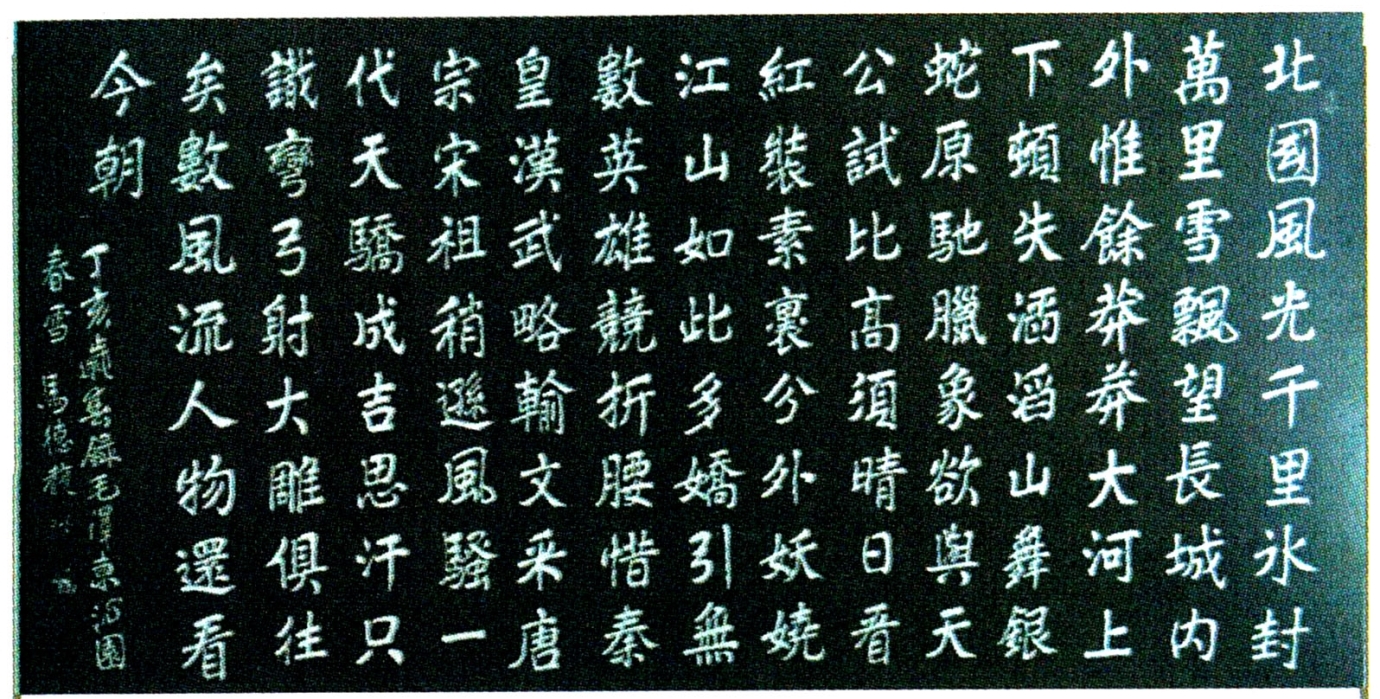 北國風光千里氷封
萬里雪飄望長城内
外惟餘莽莽大河上
下頓失滔滔山舞銀
蛇原馳臘象欲與天
公試比高須晴日看
紅裝素裹分外妖嬈
江山如此多嬌引無
數英雄競折腰惜秦
皇漢武略輸文采唐
宗宋祖稍遜風騷一
代天驕成吉思汗只
識彎弓射大雕俱往
矣數風流人物還看
今朝
丁亥歲錄毛澤東沁園
春雪 馬德